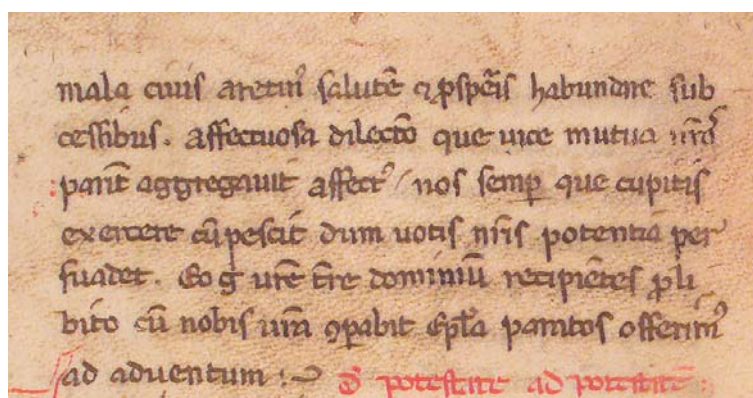 mala ciuis aretin⁹ salutē ⁊ ꝓsꝑis habundare sub
cessibus. affectuosa dilectō que uice mutua nr̄os
parit̄ aggregauit affect⁹ / nos semꝑ que cupitis
exercere dum uotis nr̄is potentia per
suadet. Eo g̊ ur̄e t̄re dominiū recipiētes ꝓ li
bito cū nobis ur̄a ꝯparabit ep̄la paratos offerim⁹
ad aduentum :
De potestate ad potestatē :